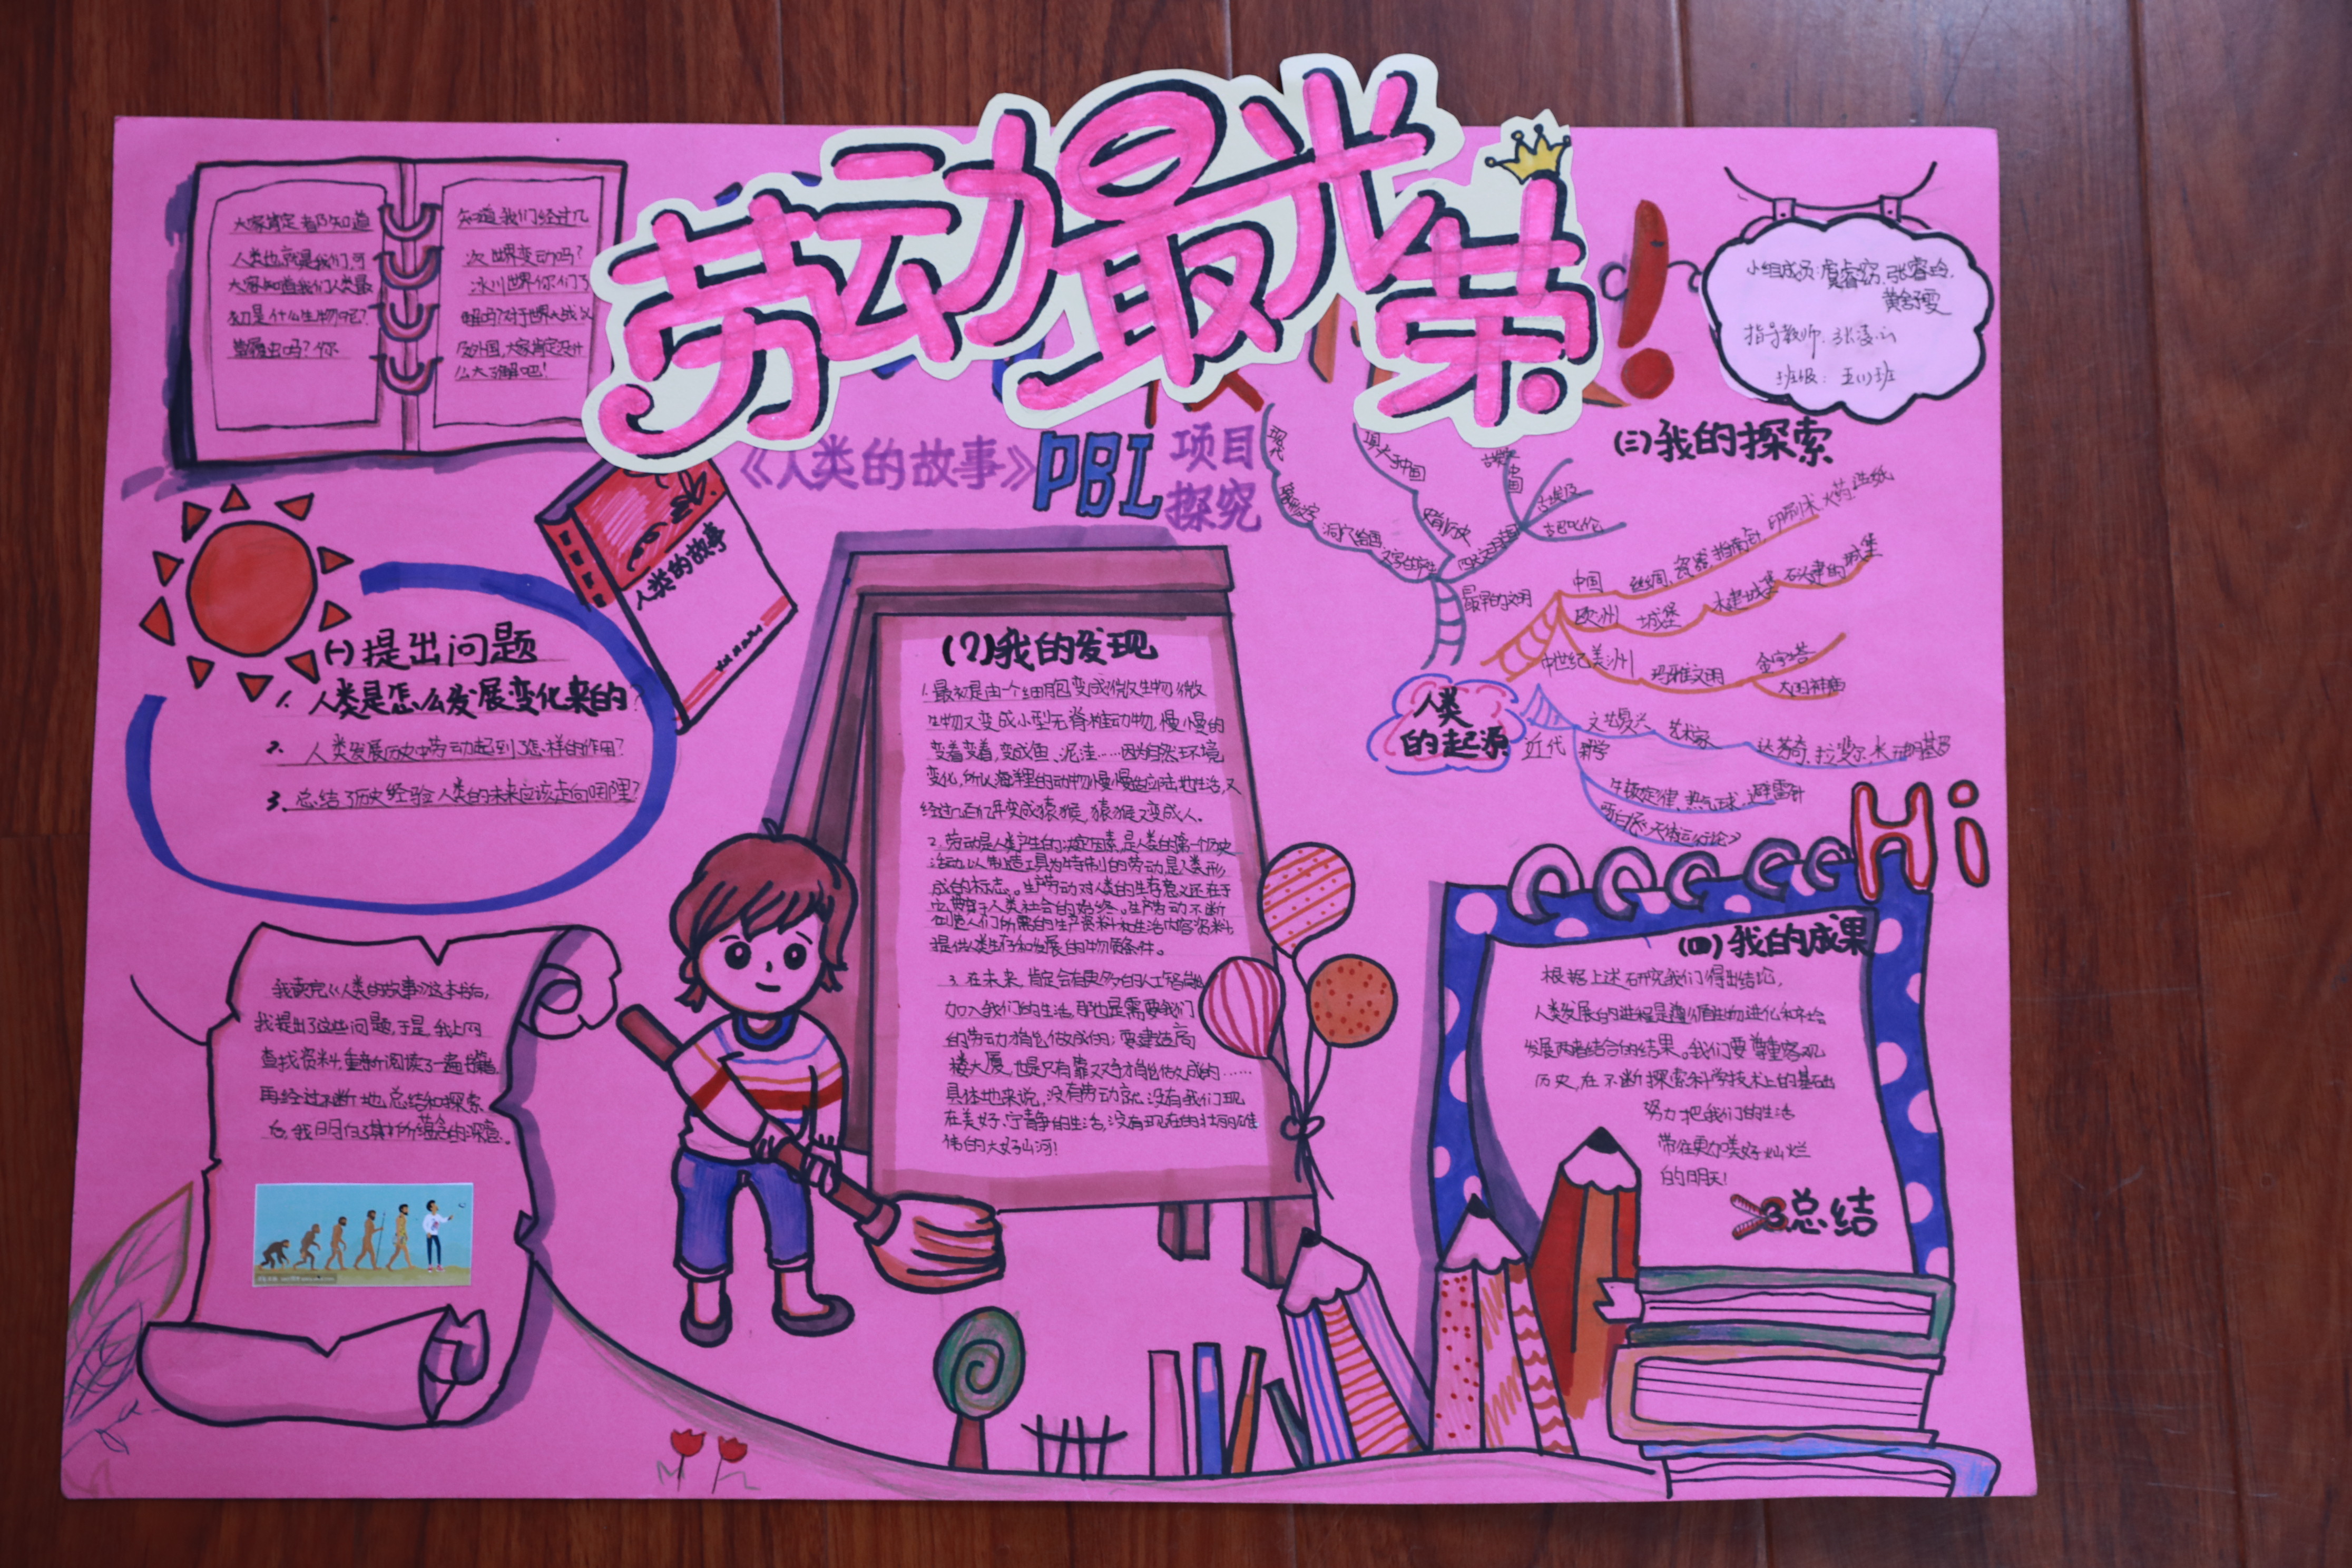 劳动最光荣
《人类的故事》PBL项目
探究
大家肯定都知道
人类也就是我们可
大家知道我们人类最
初是什么生物吧?
草履虫吗?你
知道我们经过几
次世界变动吗?
冰川世界你们了
解吗?对于世界大战以
及外国,大家肯定没什
么大了解吧!
小组成员:
黄舒雯
指导教师:张凌云
班级: 五(1)班
人类的故事
(一)提出问题
1. 人类是怎么发展变化来的?
2. 人类发展历史中劳动起到了怎样的作用?
3、总结了历史经验人类的未来应该走向哪哩?
我读完《人类的故事》这本书后,
我提出了这些问题,于是,我上网
查找资料,重新阅读了一遍书籍
再经过不断地总结和探索
后,我明白了其中所蕴含的深意。
(7)我的发现
1.最初是由一个细胞变成微生物,微
生物又变成小型无脊椎动物,慢慢的
变着变着,变成鱼、泥洼……因为自然环境
变化,所以海里的动物慢慢适应陆地生活,又
经过几百亿年变成猿猴,猿猴又变成人。
2.劳动是人类产生的决定因素,是人类的第一个历史
活动,以制造工具为特制的劳动是人类形
成的标志。生产劳动对人类的生存意义还在于
它贯穿于人类社会的始终。生产劳动不断
创造人们所需的生产资料和生活内容资料,
提供人类生存和发展的物质条件。
3.在未来,肯定会有更多的人工智能
加入我们的生活,那也是需要我们
的劳动才能做成的;要建造高
楼大厦,也是只有靠双手才能做成的……
具体地来说,没有劳动就没有我们现
在美好、宁静的生活,没有现在的壮丽雄
伟的大好山河!
(三)我的探索
人类
的起源
最早的文明
现代
象形文字
洞穴绘画
文字的产生
四大文明古国
古埃及
古巴比伦
中国
丝绸、瓷器、指南针、印刷术、火药、造纸
欧洲 城堡 木建城堡 石头建的城堡
中世纪美洲 玛雅文明 金字塔
太阳神庙
近代
文艺复兴 艺术家 达芬奇、拉斐尔、米开朗基罗
科学
牛顿定律、热气球、避雷针
哥白尼《天体运行论》
Hi
(四)我的成果
根据上述研究我们得出结论,
人类发展的进程是遵循生物进化和社会
发展两者结合的结果。我们要尊重客观
历史,在不断探索科学技术上的基础
努力把我们的生活
带往更加美好灿烂
的明天!
总结